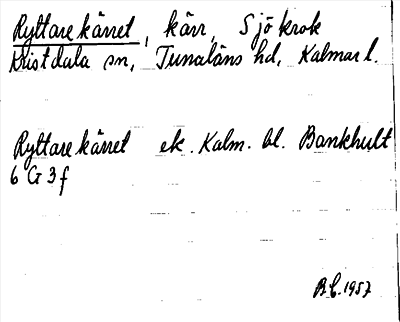 Ryttarekärret, kärr, Sjökrok
Kristdala sn, Tunaläns hd, Kalmar l.
Ryttarekärret ek. Kalm. bl. Bankhult
6 G 3 f
B.C. 1957